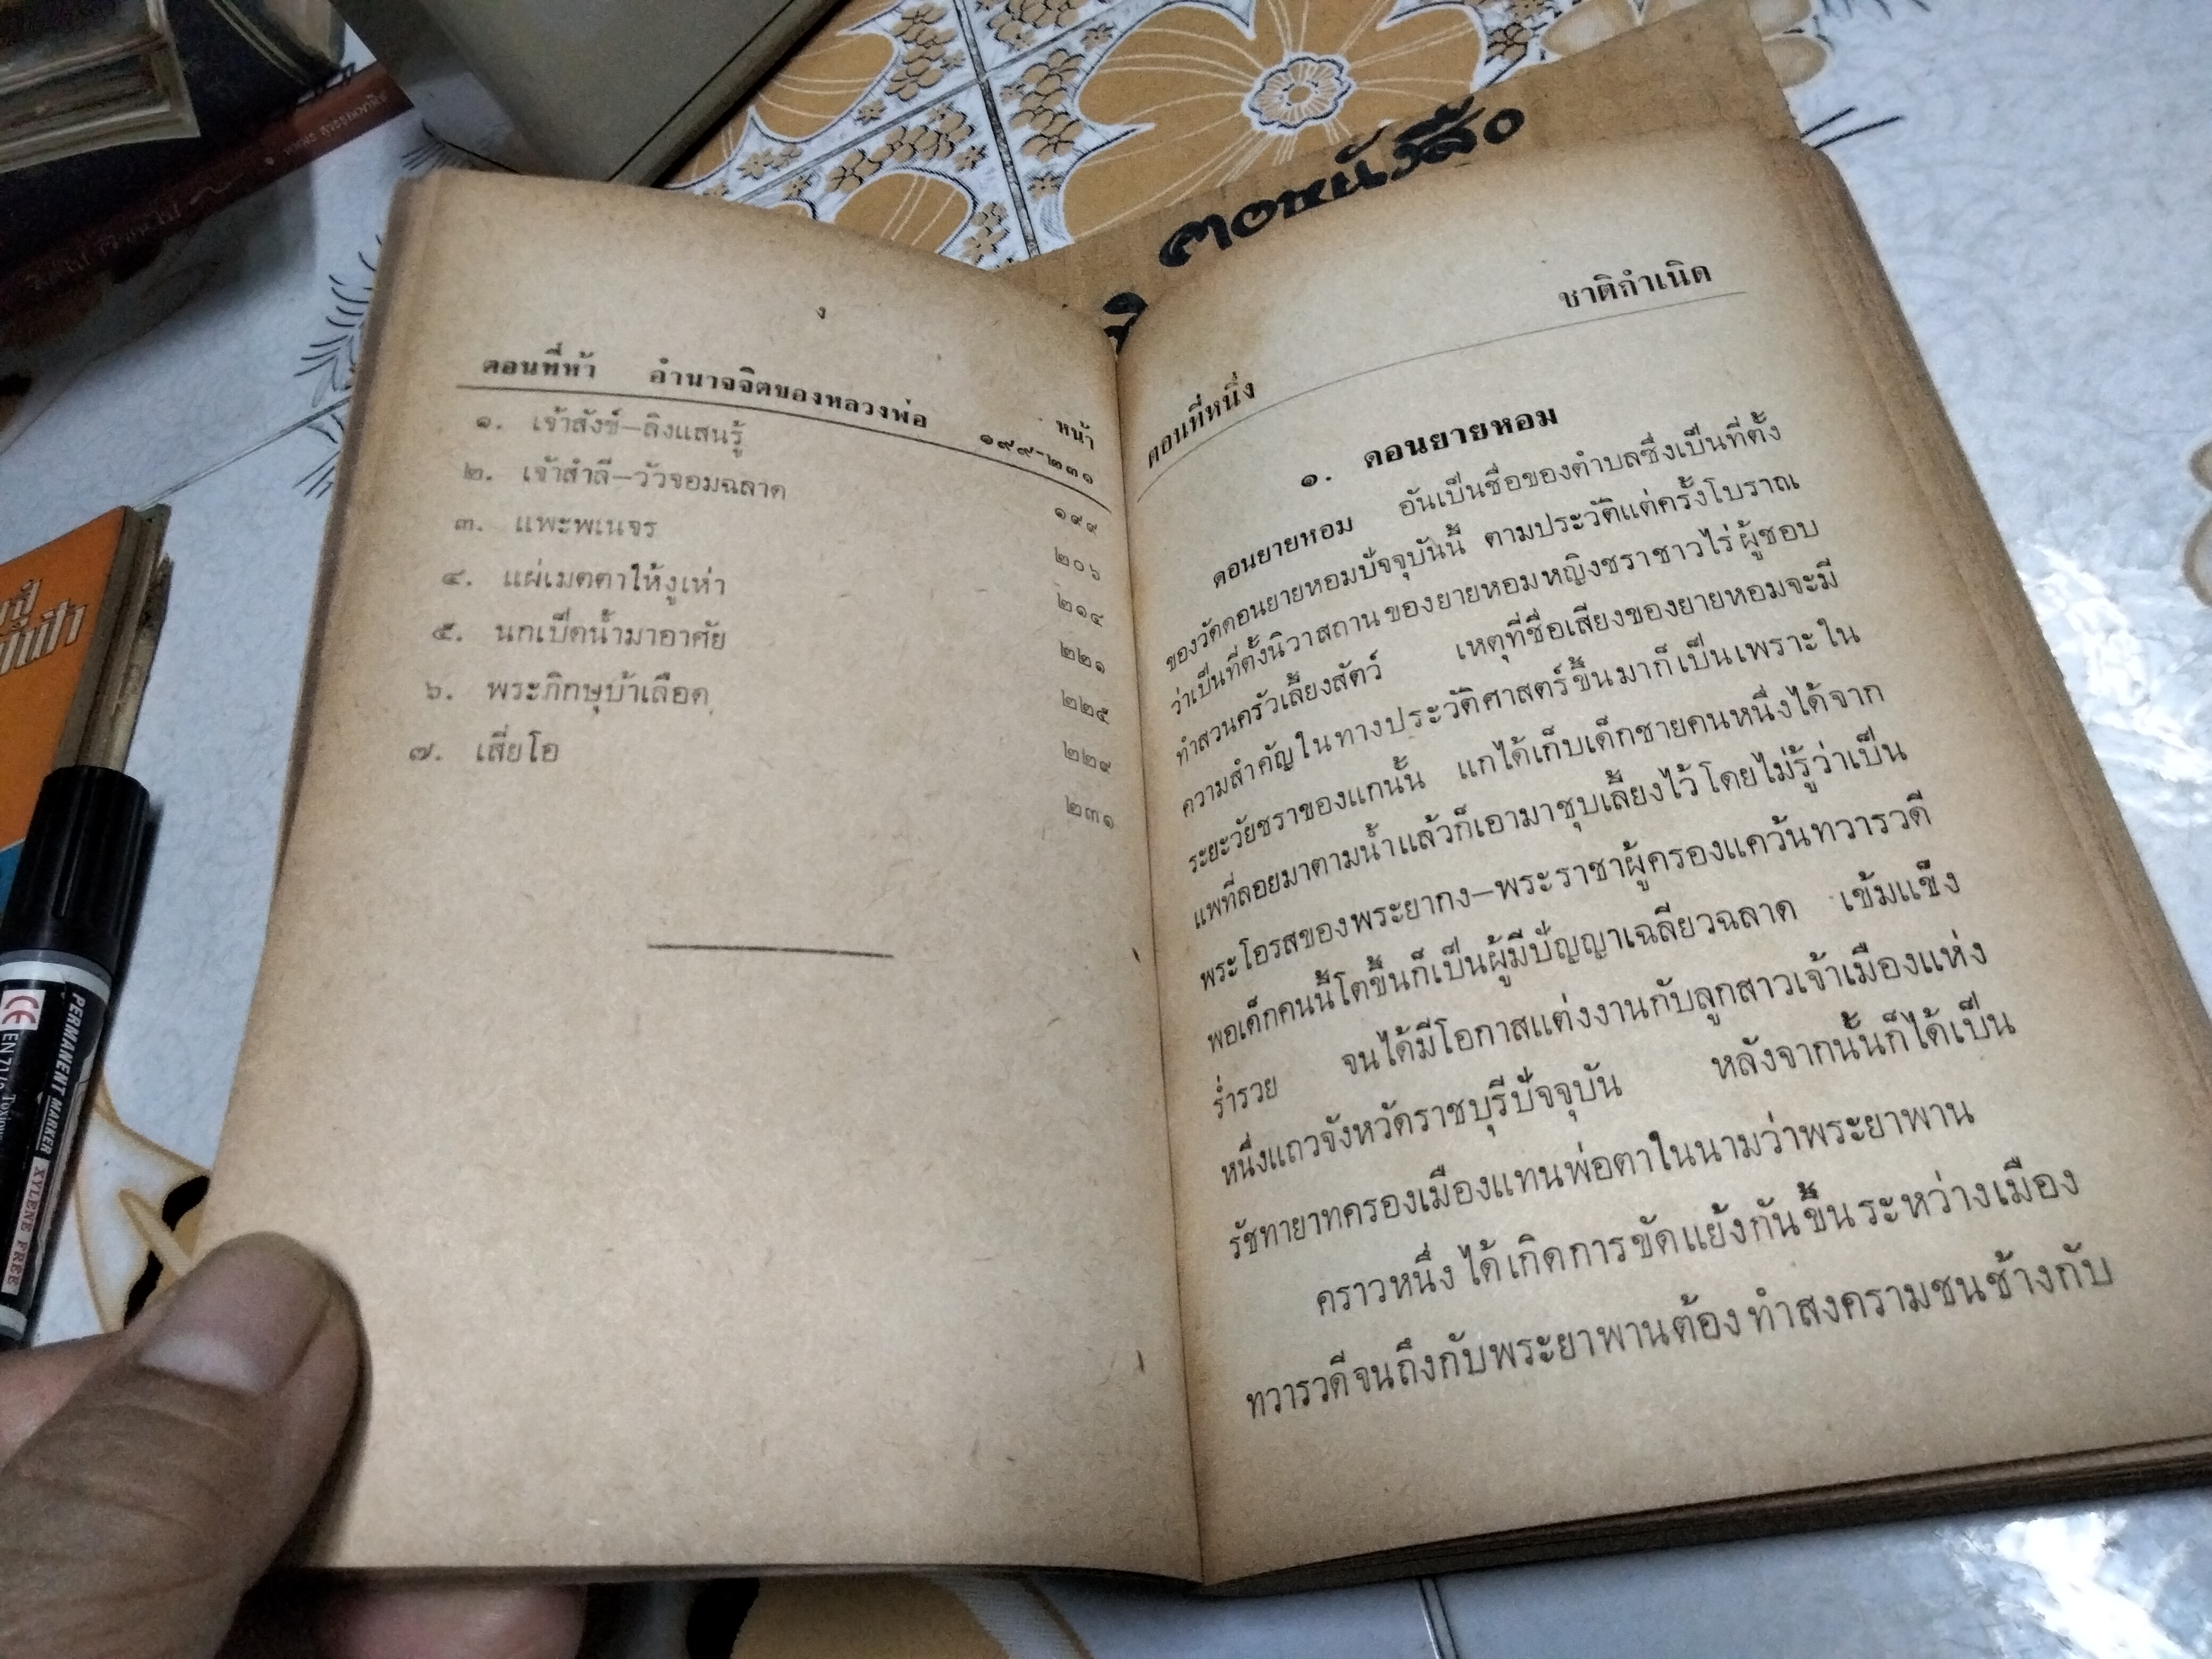 ง
หน้า
ตอนที่ห้า อำนาจจิตของหลวงพ่อ ๑๙๙-๒๓๑
๑. เจ้าสังข์–ลิงแสนรู้ ๑๙๙
๒. เจ้าสำลี–วัวจอมฉลาด ๒๐๖
๓. แพะพเนจร ๒๑๔
๔. แผ่เมตตาให้งูเห่า ๒๒๑
๕. นกเป็ดน้ำมาอาศัย ๒๒๕
๖. พระภิกษุบ้าเลือด ๒๒๙
๗. เสี่ยโอ ๒๓๑
ตอนที่หนึ่ง ชาติกำเนิด
๑. ดอนยายหอม
ดอนยายหอม อันเป็นชื่อของตำบลซึ่งเป็นที่ตั้ง
ของวัดดอนยายหอมปัจจุบันนี้ ตามประวัติแต่ครั้งโบราณ
ว่าเป็นที่ตั้งนิวาสถานของยายหอมหญิงชราชาวไร่ผู้ชอบ
ทำสวนครัวเลี้ยงสัตว์ เหตุที่ชื่อเสียงของยายหอมจะมี
ความสำคัญในทางประวัติศาสตร์ขึ้นมาก็เป็นเพราะใน
ระยะวัยชราของแกนั้น แกได้เก็บเด็กชายคนหนึ่งได้จาก
แพที่ลอยมาตามน้ำแล้วก็เอามาชุบเลี้ยงไว้โดยไม่รู้ว่าเป็น
พระโอรสของพระยากง–พระราชาผู้ครองแคว้นทวารวดี
พอเด็กคนนี้โตขึ้นก็เป็นผู้มีปัญญาเฉลียวฉลาด เข้มแข็ง
ร่ำรวย จนได้มีโอกาสแต่งงานกับลูกสาวเจ้าเมืองแห่ง
หนึ่งแถวจังหวัดราชบุรีปัจจุบัน หลังจากนั้นก็ได้เป็น
รัชทายาทครองเมืองแทนพ่อตาในนามว่าพระยาพาน
คราวหนึ่งได้เกิดการขัดแย้งกันขึ้นระหว่างเมือง
ทวารวดีจนถึงกับพระยาพานต้องทำสงครามชนช้างกับ
PERMANENT MARKER
XYLENE FREE